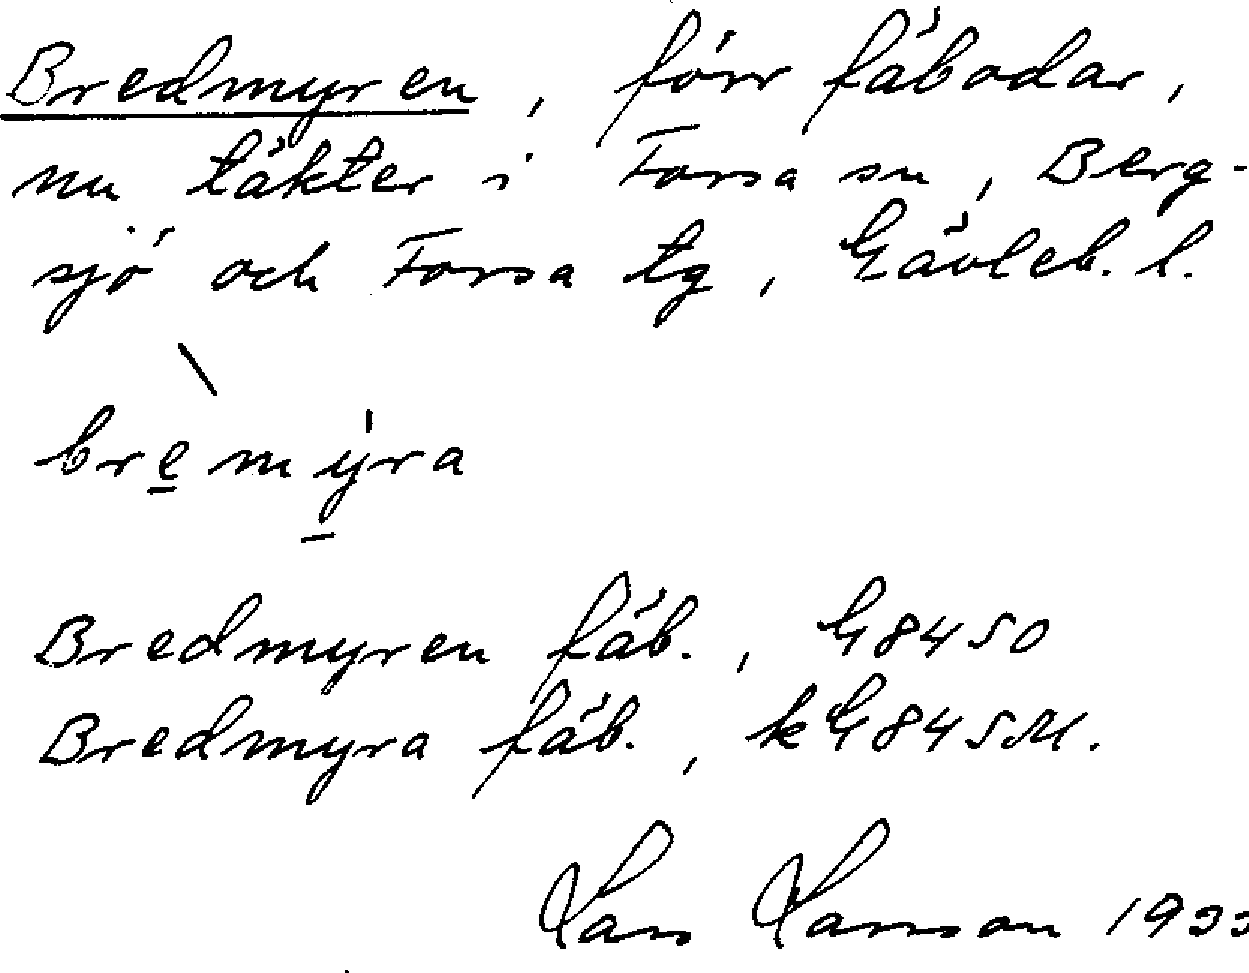 Bredmyren, förr fäbodar,
nu täkter i Forsa sn, Berg-
sjö och Forsa tg, Gävleb. l.
brèmýra
Bredmyren fäb., G 84 SO
Bredmyra fäb., kG 84 SM.
Lars Larsson 1933